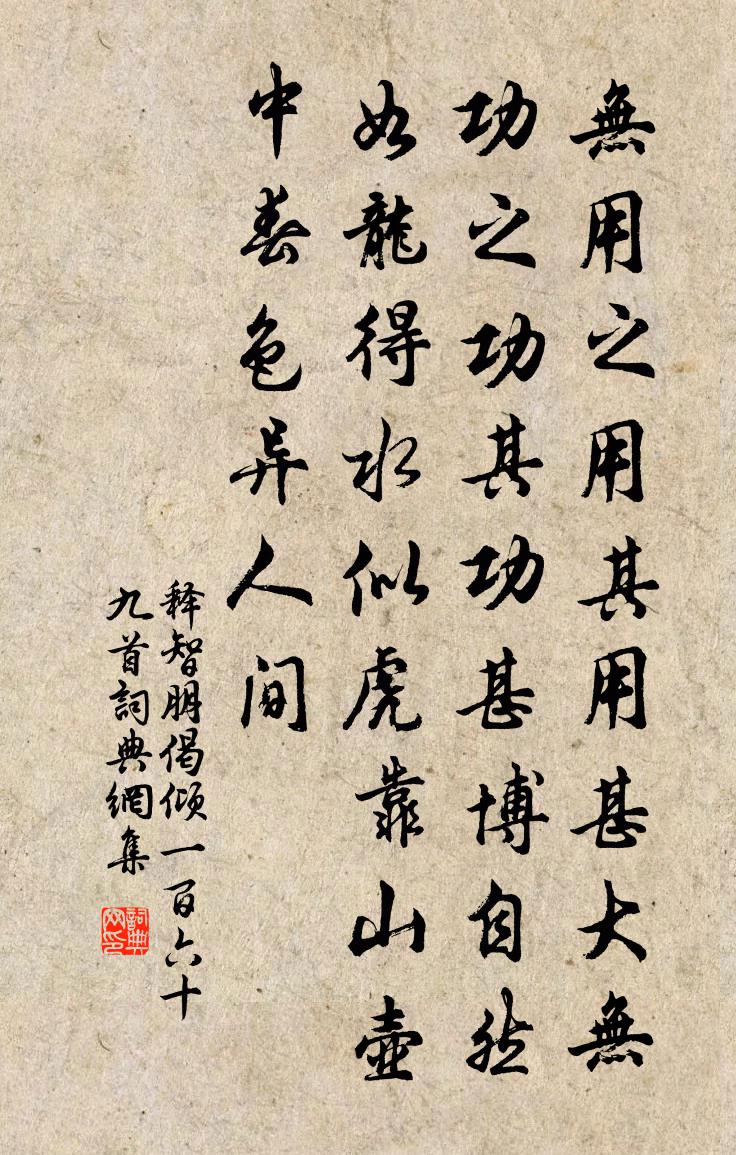 無用之用其用甚大無
功之功其功甚博自然
如龍得水似虎靠山壺
中春色异人间
释智朋偈倾一百六十
九首詞典網集
詞典网印